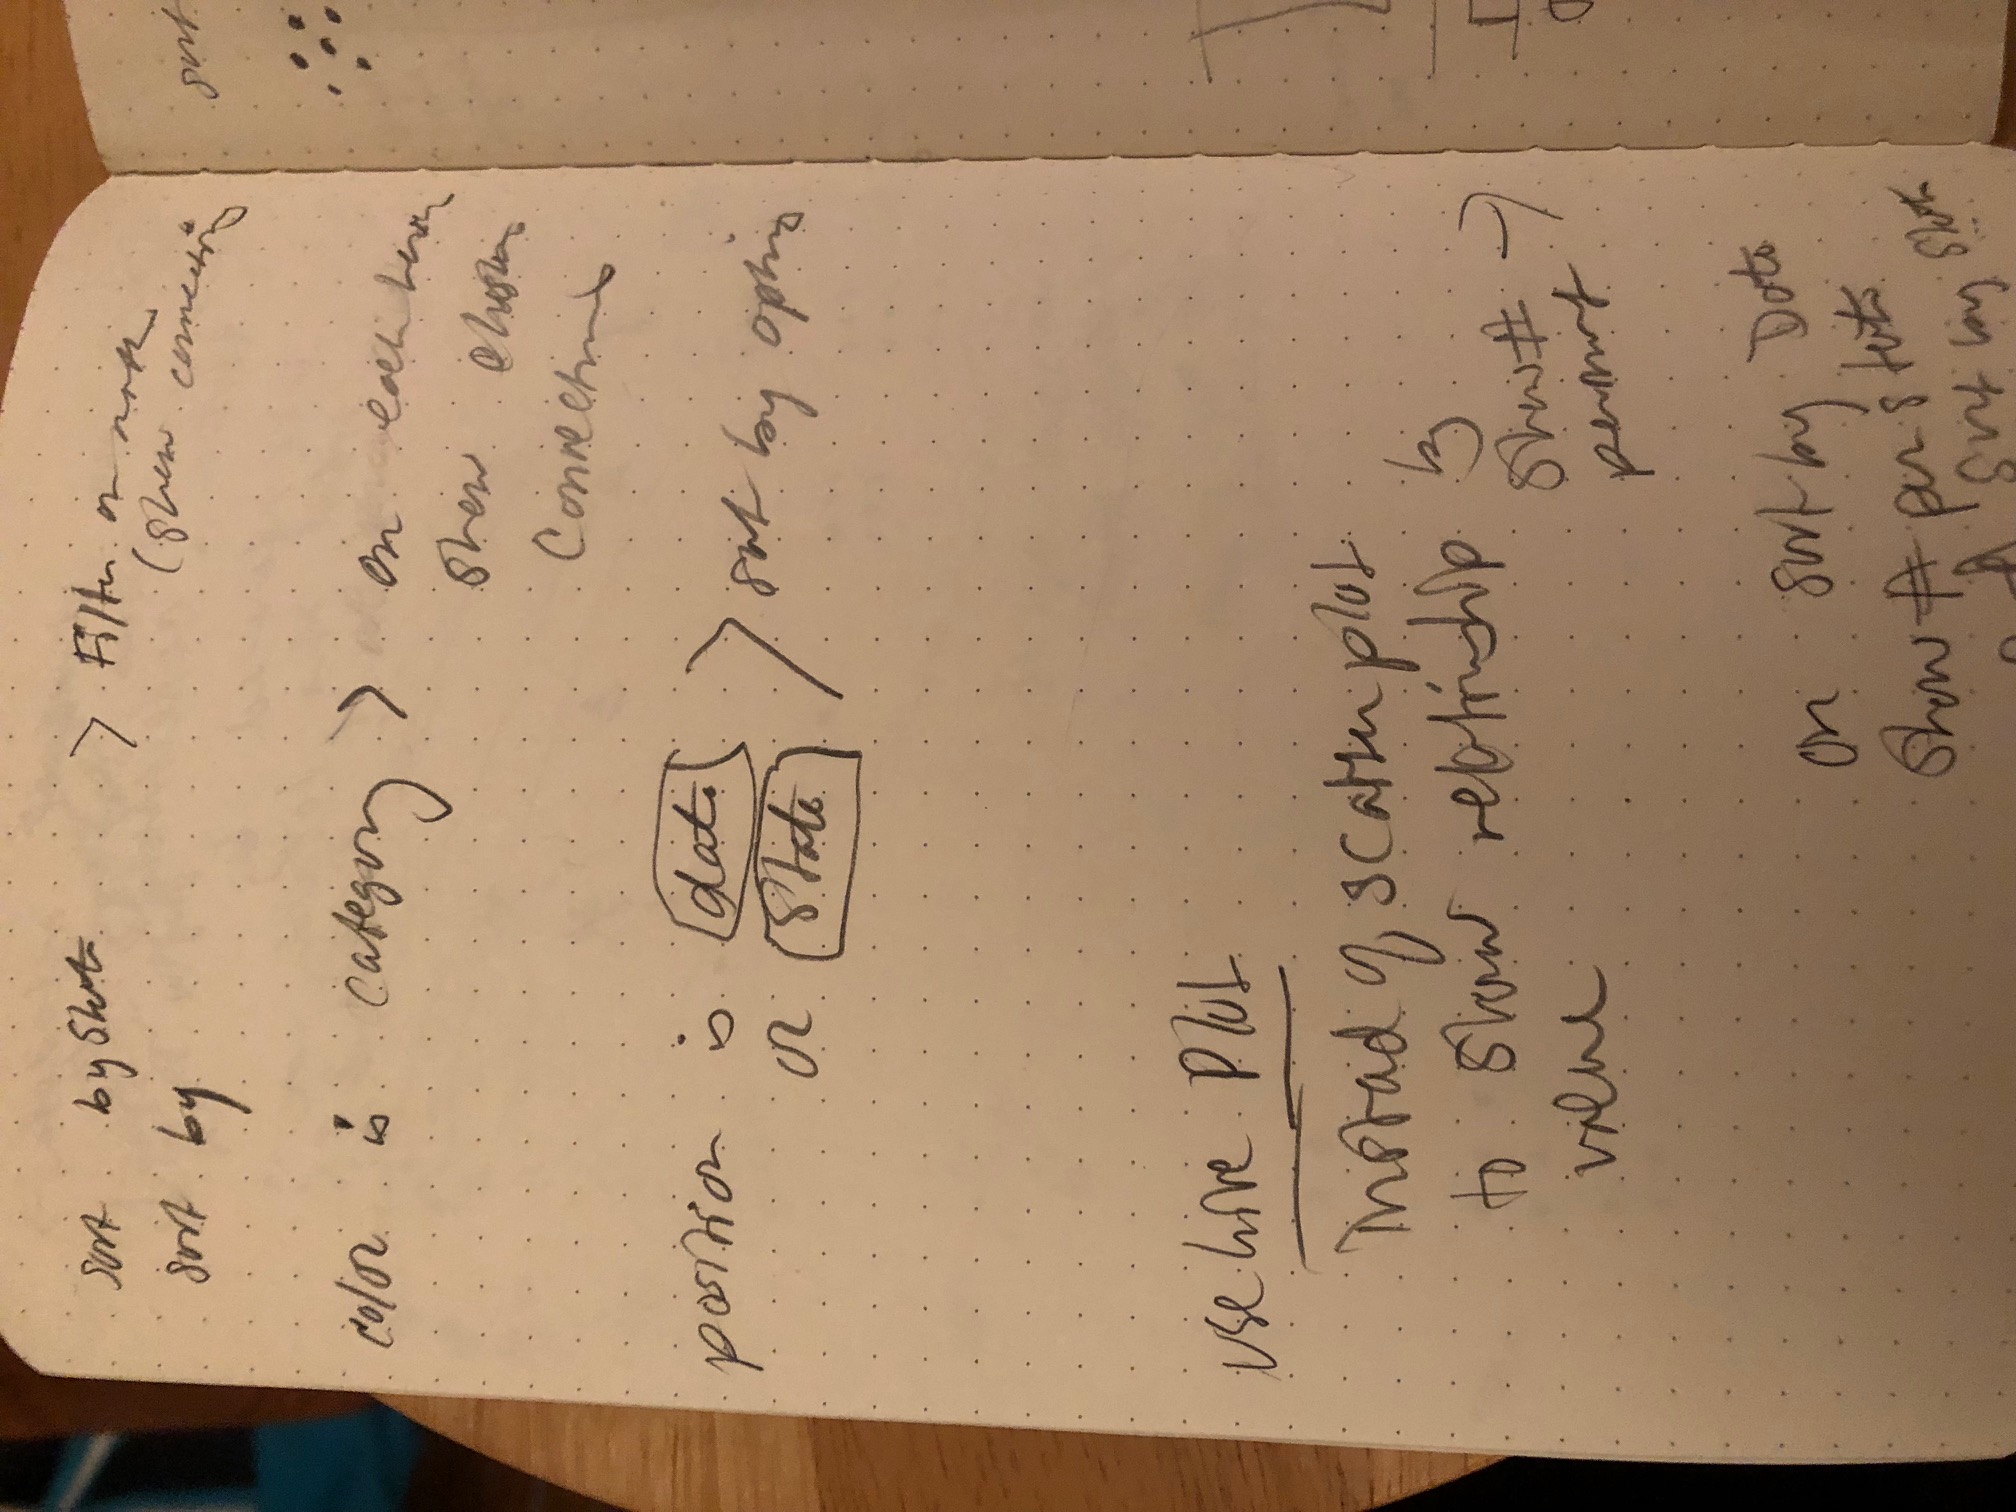 sort by State > Filter on
sort by (show connecting
color is category > on each
show
Connections
position is date
or state > sort by options
use hive Plot
Instead of scatter plot
to show relationship by
value show #
on sort by Date
show # per state
sort by state
sort